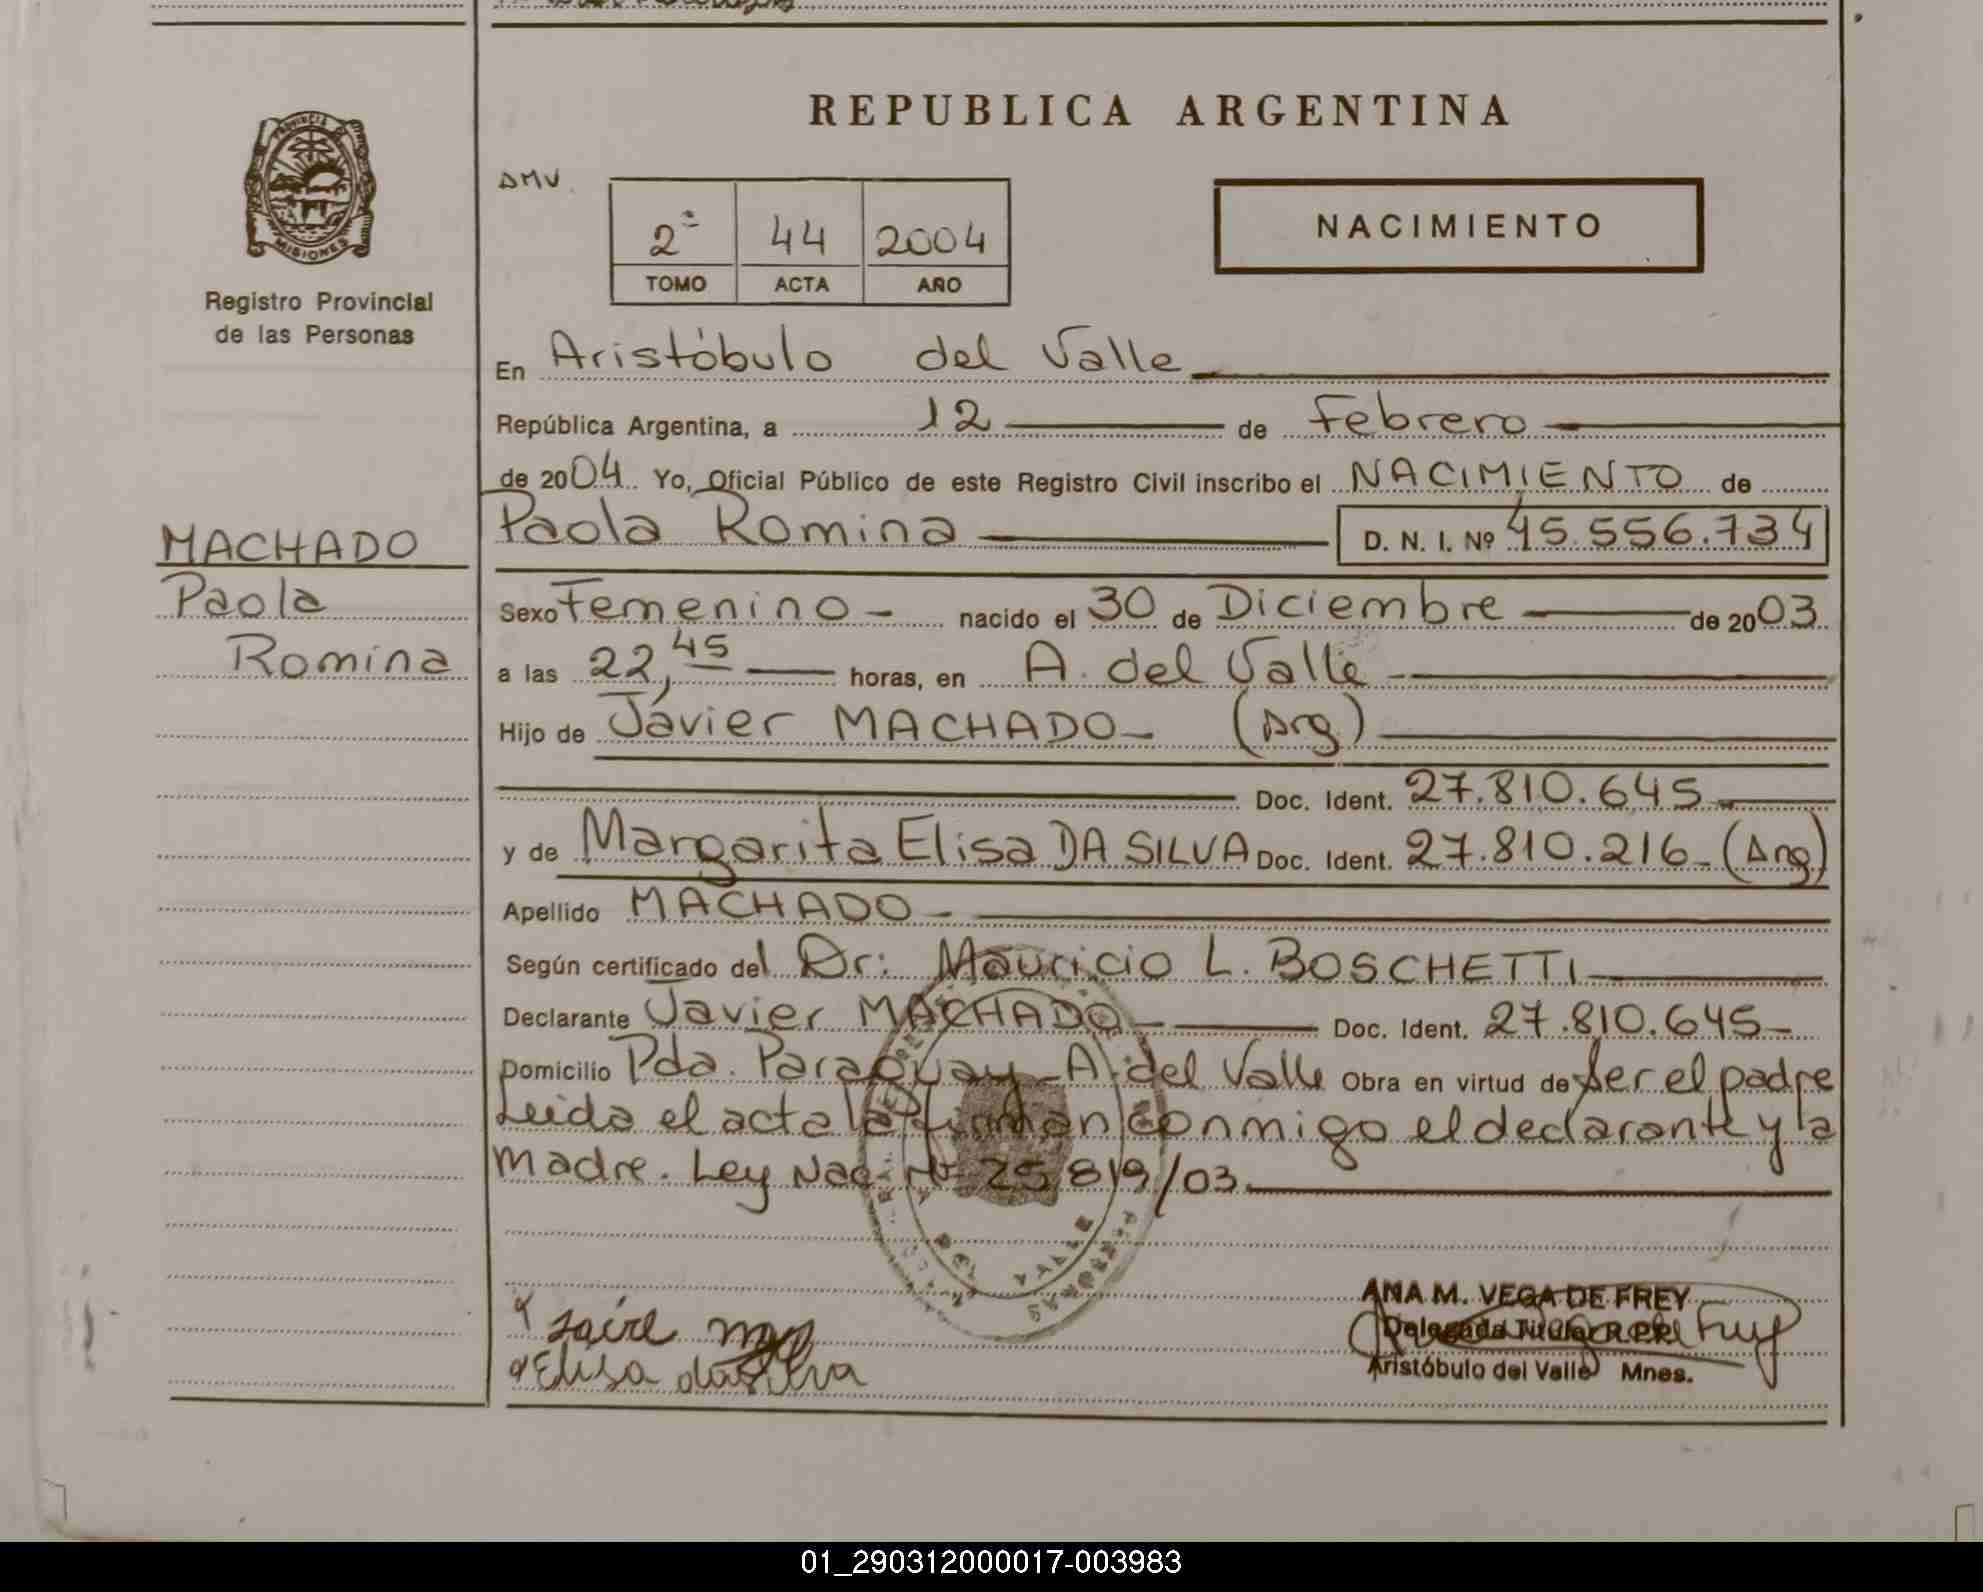 REPUBLICA ARGENTINA
PROVINCIA DE MISIONES
Registro Provincial
de las Personas
AMV.
2ª 44 2004
TOMO ACTA AÑO
NACIMIENTO
En Aristóbulo del Valle
República Argentina, a 12 de Febrero
de 2004. Yo, Oficial Público de este Registro Civil inscribo el NACIMIENTO de
Paola Romina D. N. I. Nº 45.556.734
MACHADO
Paola
Romina
Sexo Femenino - nacido el 30 de Diciembre de 2003
a las 22,45 horas, en A. del Valle
Hijo de Javier MACHADO (Arg)
Doc. Ident. 27.810.645
y de Margarita Elisa DA SILVA Doc. Ident. 27.810.216 (Arg)
Apellido MACHADO
Según certificado del Dr: Mauricio L. BOSCHETTI
Declarante Javier MACHADO Doc. Ident. 27.810.645
Domicilio Pda. Paraguay - A. del Valle Obra en virtud de ser el padre
Leida el acta la firman conmigo el declarante y la
madre. Ley Nac Nº 25.819/03
DEL VALLE
ANA M. VEGA DE FREY
Delegada Titular R.P.P.
Aristóbulo del Valle Mnes.
Elisa da silva
01_290312000017-003983